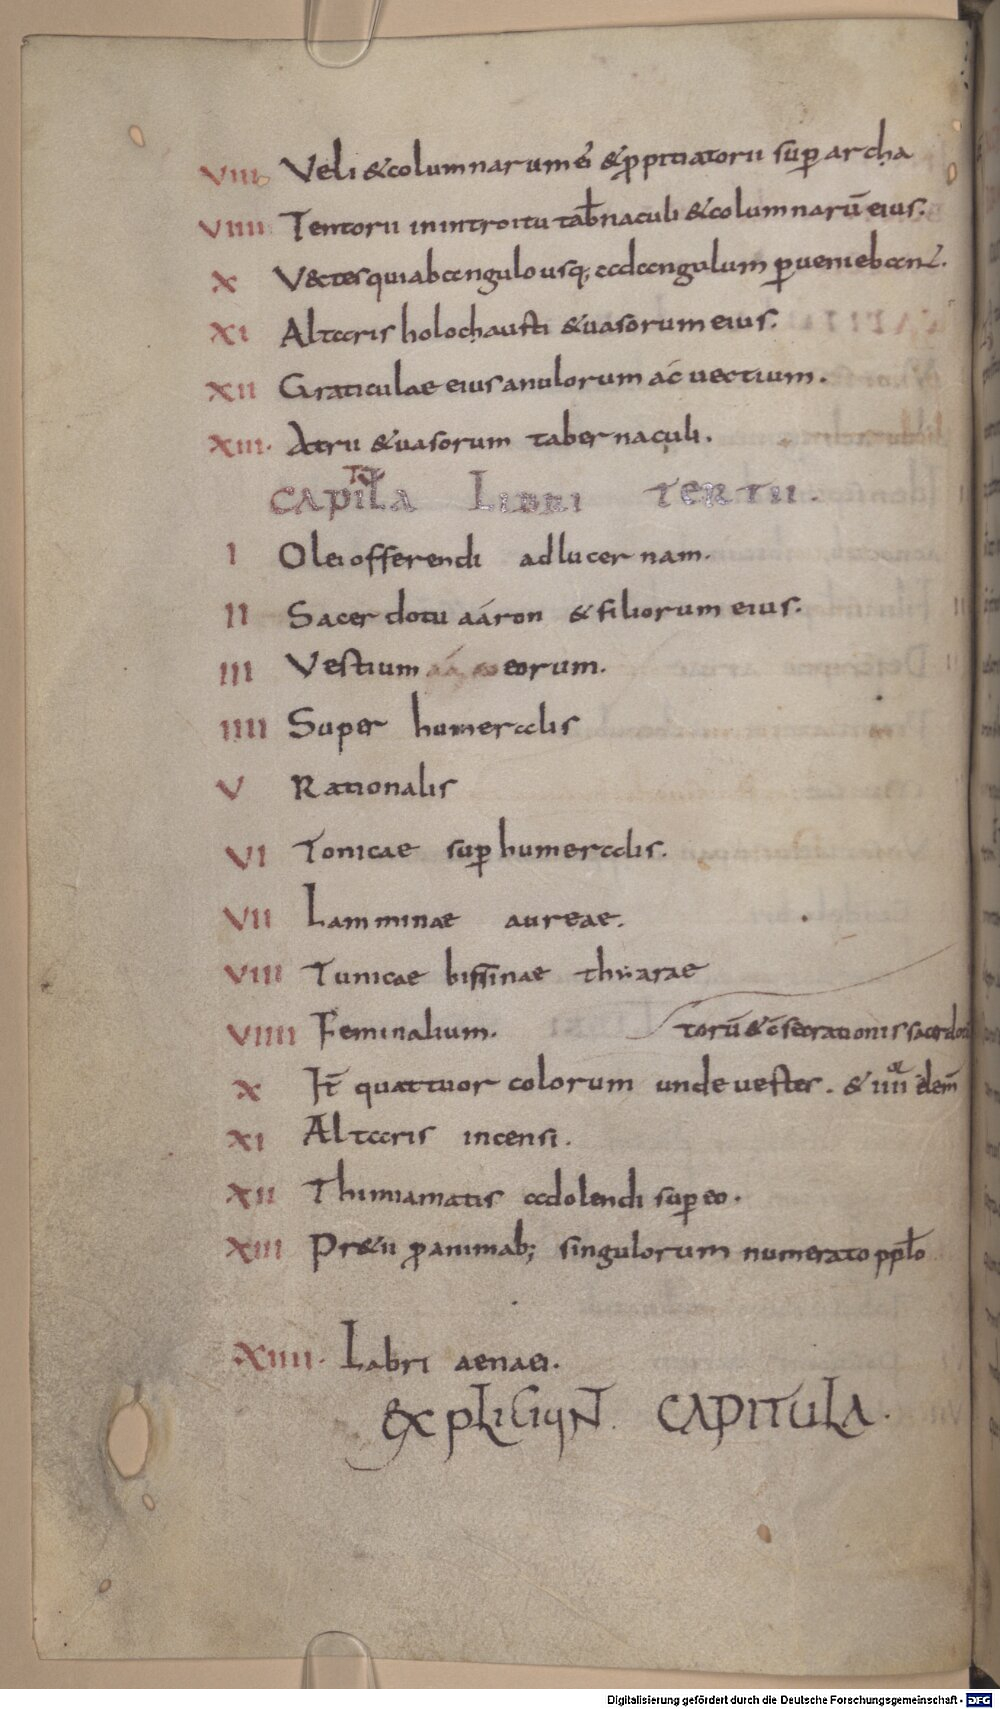 VIII Veli & columnarum ei & ꝓpitiatorii suꝑ archa
VIIII Tentorii in introitu tab̄naculi & columnarū eius.
X Vectes qui ab angulo usq; ad angulum ꝑueniebant.
XI Altaris holochausti & uasorum eius.
XII Graticulae eius anulorum ac uectium.
XIII. Atrii & uasorum tabernaculi.
CAPITLA LIBRI TERTII.
I Olei offerendi ad lucernam.
II Sacerdotu aáron & filiorum eius.
III Vestium eorum.
IIII Super humeralis
V Rationalis
VI Tonicae suꝑ humeralis.
VII Lamminae aureae.
VIII Tunicae bissinae thiarae
VIIII Feminalium. torū & c̄secrationis sacerdotū
X It̄ quattuor colorum unde uestes. & IIII elem̄
XI Altaris incensi.
XII Thimiamatis adolendi suꝑ eo.
XIII Pr&ii ꝓ animab; singulorum numerato ppl̄o
XIIII. Labri aenaei.
EXPLICIUNT CAPITULA.
Digitalisierung gefördert durch die Deutsche Forschungsgemeinschaft - DFG